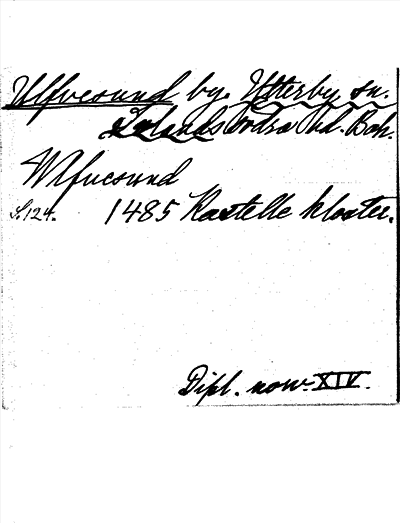 Ulfvesund by. Ytterby sn.
Inlands Södra hd. Boh.
Wlfuesund
S.124. 1485 Kastelle kloster.
Dipl. norv. XIV.